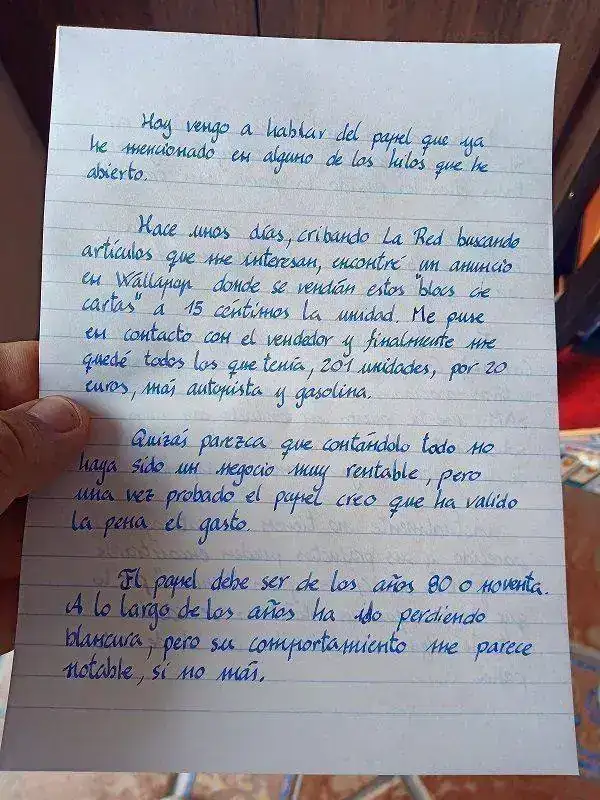 Hoy vengo a hablar del papel que ya
he mencionado en alguno de los hilos que he
abierto.
Hace unos días, cribando La Red buscando
artículos que me interesan, encontré un anuncio
en Wallapop donde se vendían estos "blocs de
cartas" a 15 céntimos la unidad. Me puse
en contacto con el vendedor y finalmente me
quedé todos los que tenía, 201 unidades, por 20
euros, más autopista y gasolina.
Quizás parezca que contándolo todo no
haya sido un negocio muy rentable, pero
una vez probado el papel creo que ha valido
la pena el gasto.
El papel debe ser de los años 80 o noventa.
A lo largo de los años ha ido perdiendo
blancura, pero su comportamiento me parece
notable, si no más.